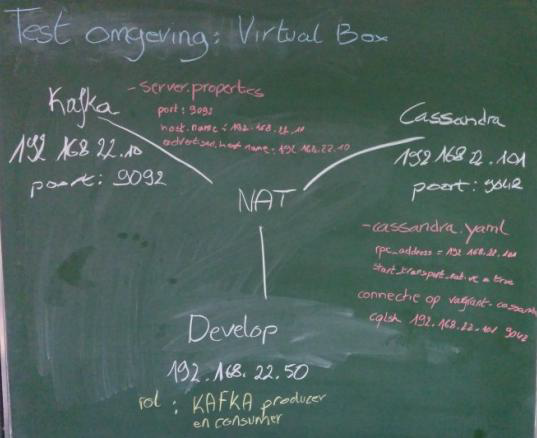 Test omgeving: Virtual Box
Kafka
192.168.22.10
poort: 9092
- server.properties
port: 9092
host.name: 192.168.22.10
advertised.host.name: 192.168.22.10
Cassandra
192.168.22.101
poort: 9042
NAT
- cassandra.yaml
rpc_address = 192.168.22.101
start_transport_native = true
connectie op vagrant-cassandra
cqlsh 192.168.22.101 9042
Develop
192.168.22.50
rol : KAFKA producer
en consumer